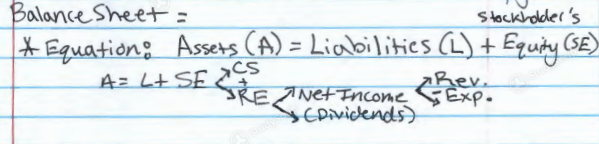 Balance Sheet =
stockholder's
* Equation: Assets (A) = Liabilities (L) + Equity (SE)
A = L + SE CS
+
RE Net Income Rev.
- Exp.
(Dividends)